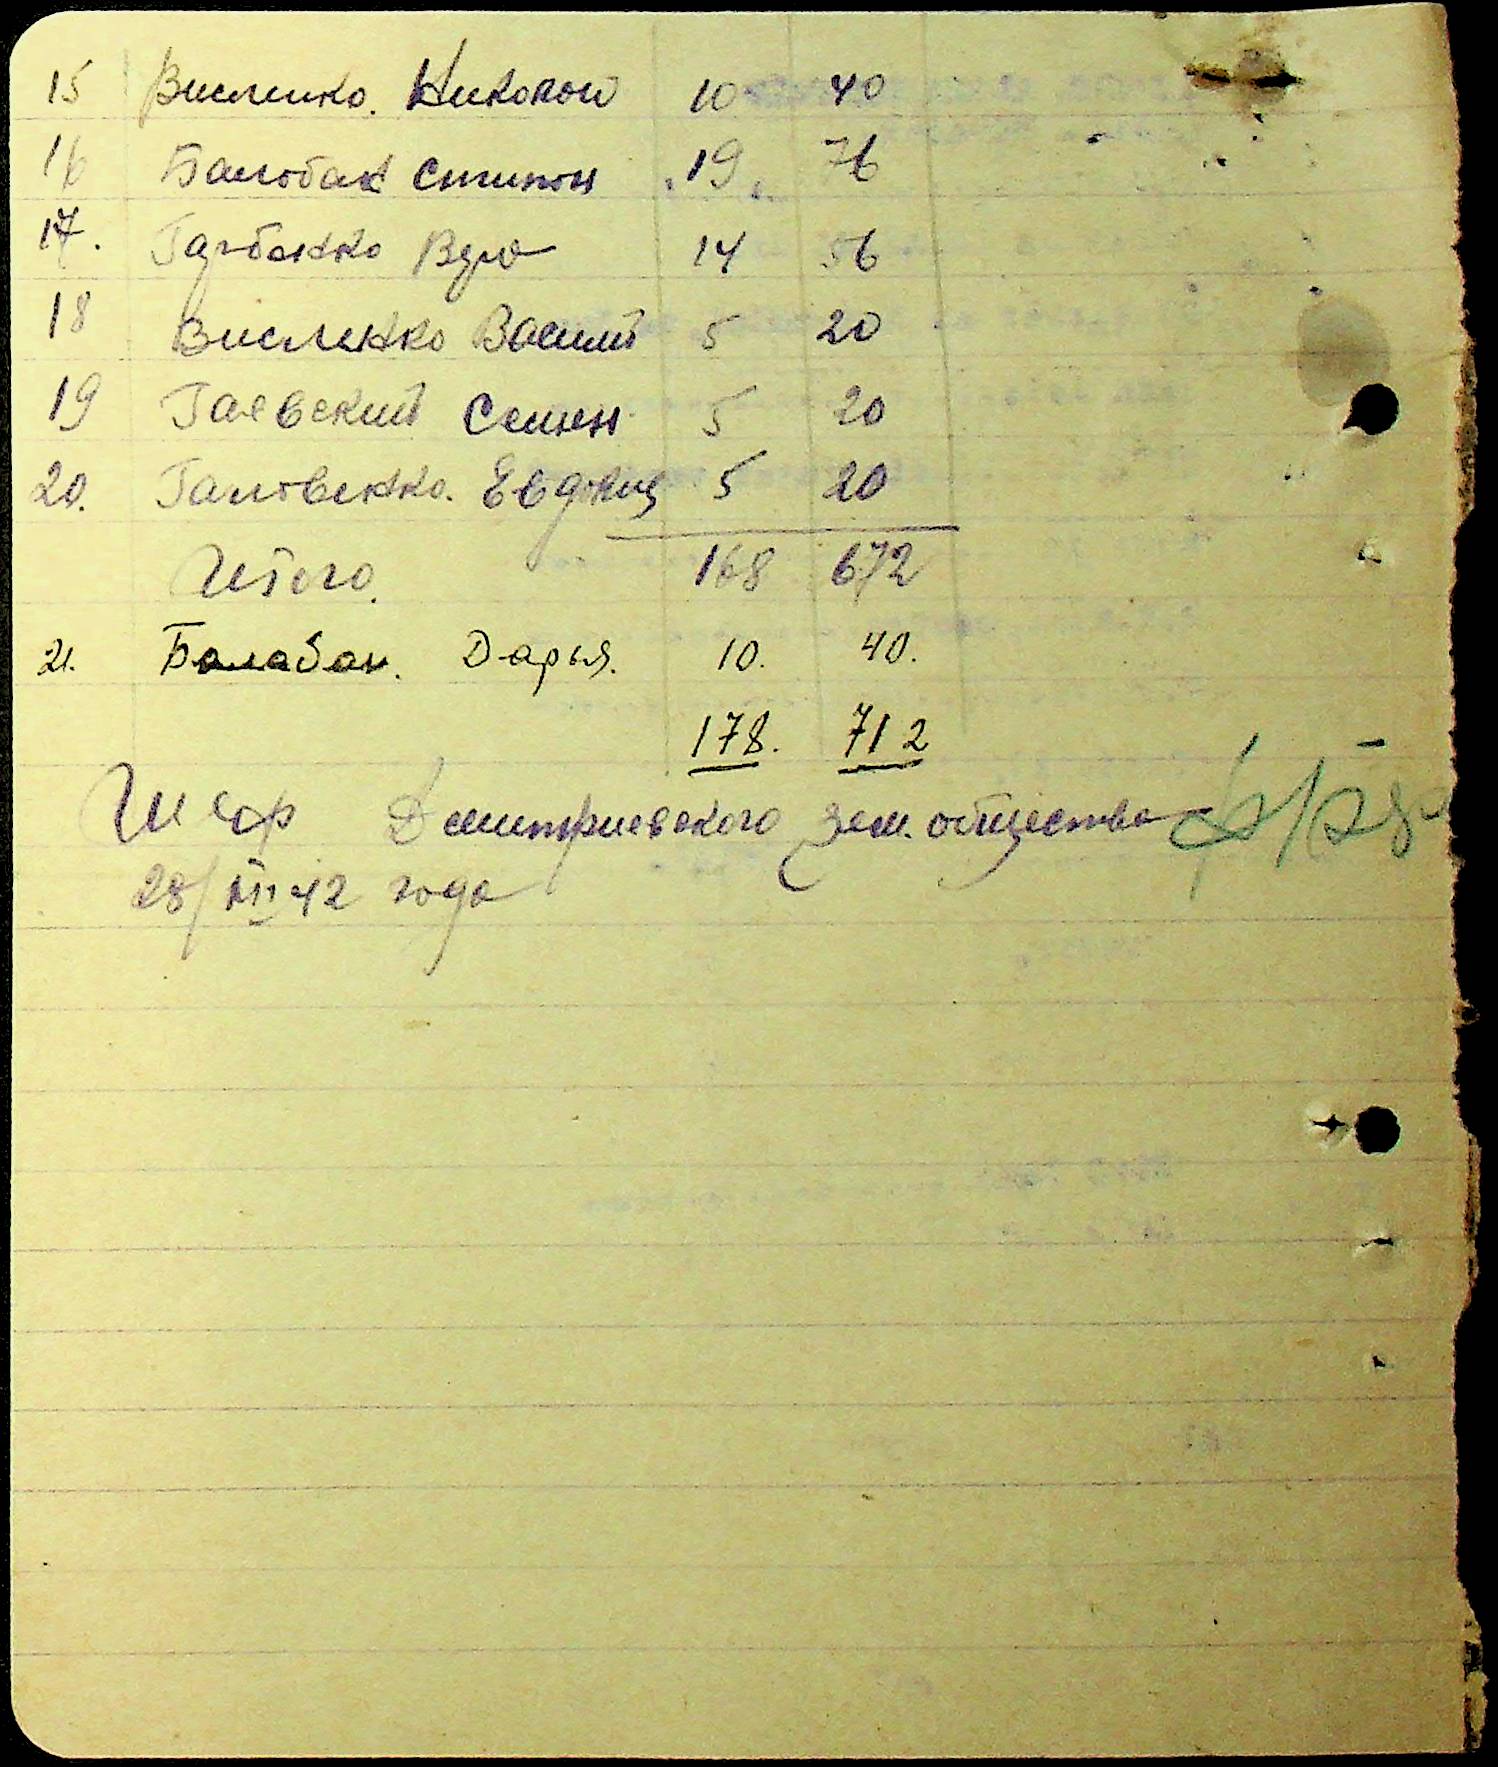 15 Висленко. Николай 10 40
16 Балобан Степан 19 76
17. Горбенко 14 56
18 Висленко Василий 5 20
19 Гаевский Семен 5 20
20. Головенко. Евдокия 5 20
Итого. 168 672
21. Балабан. Дарья. 10. 40.
178. 712
Шеф Дмитриевского зем. общества
28/ 42 года